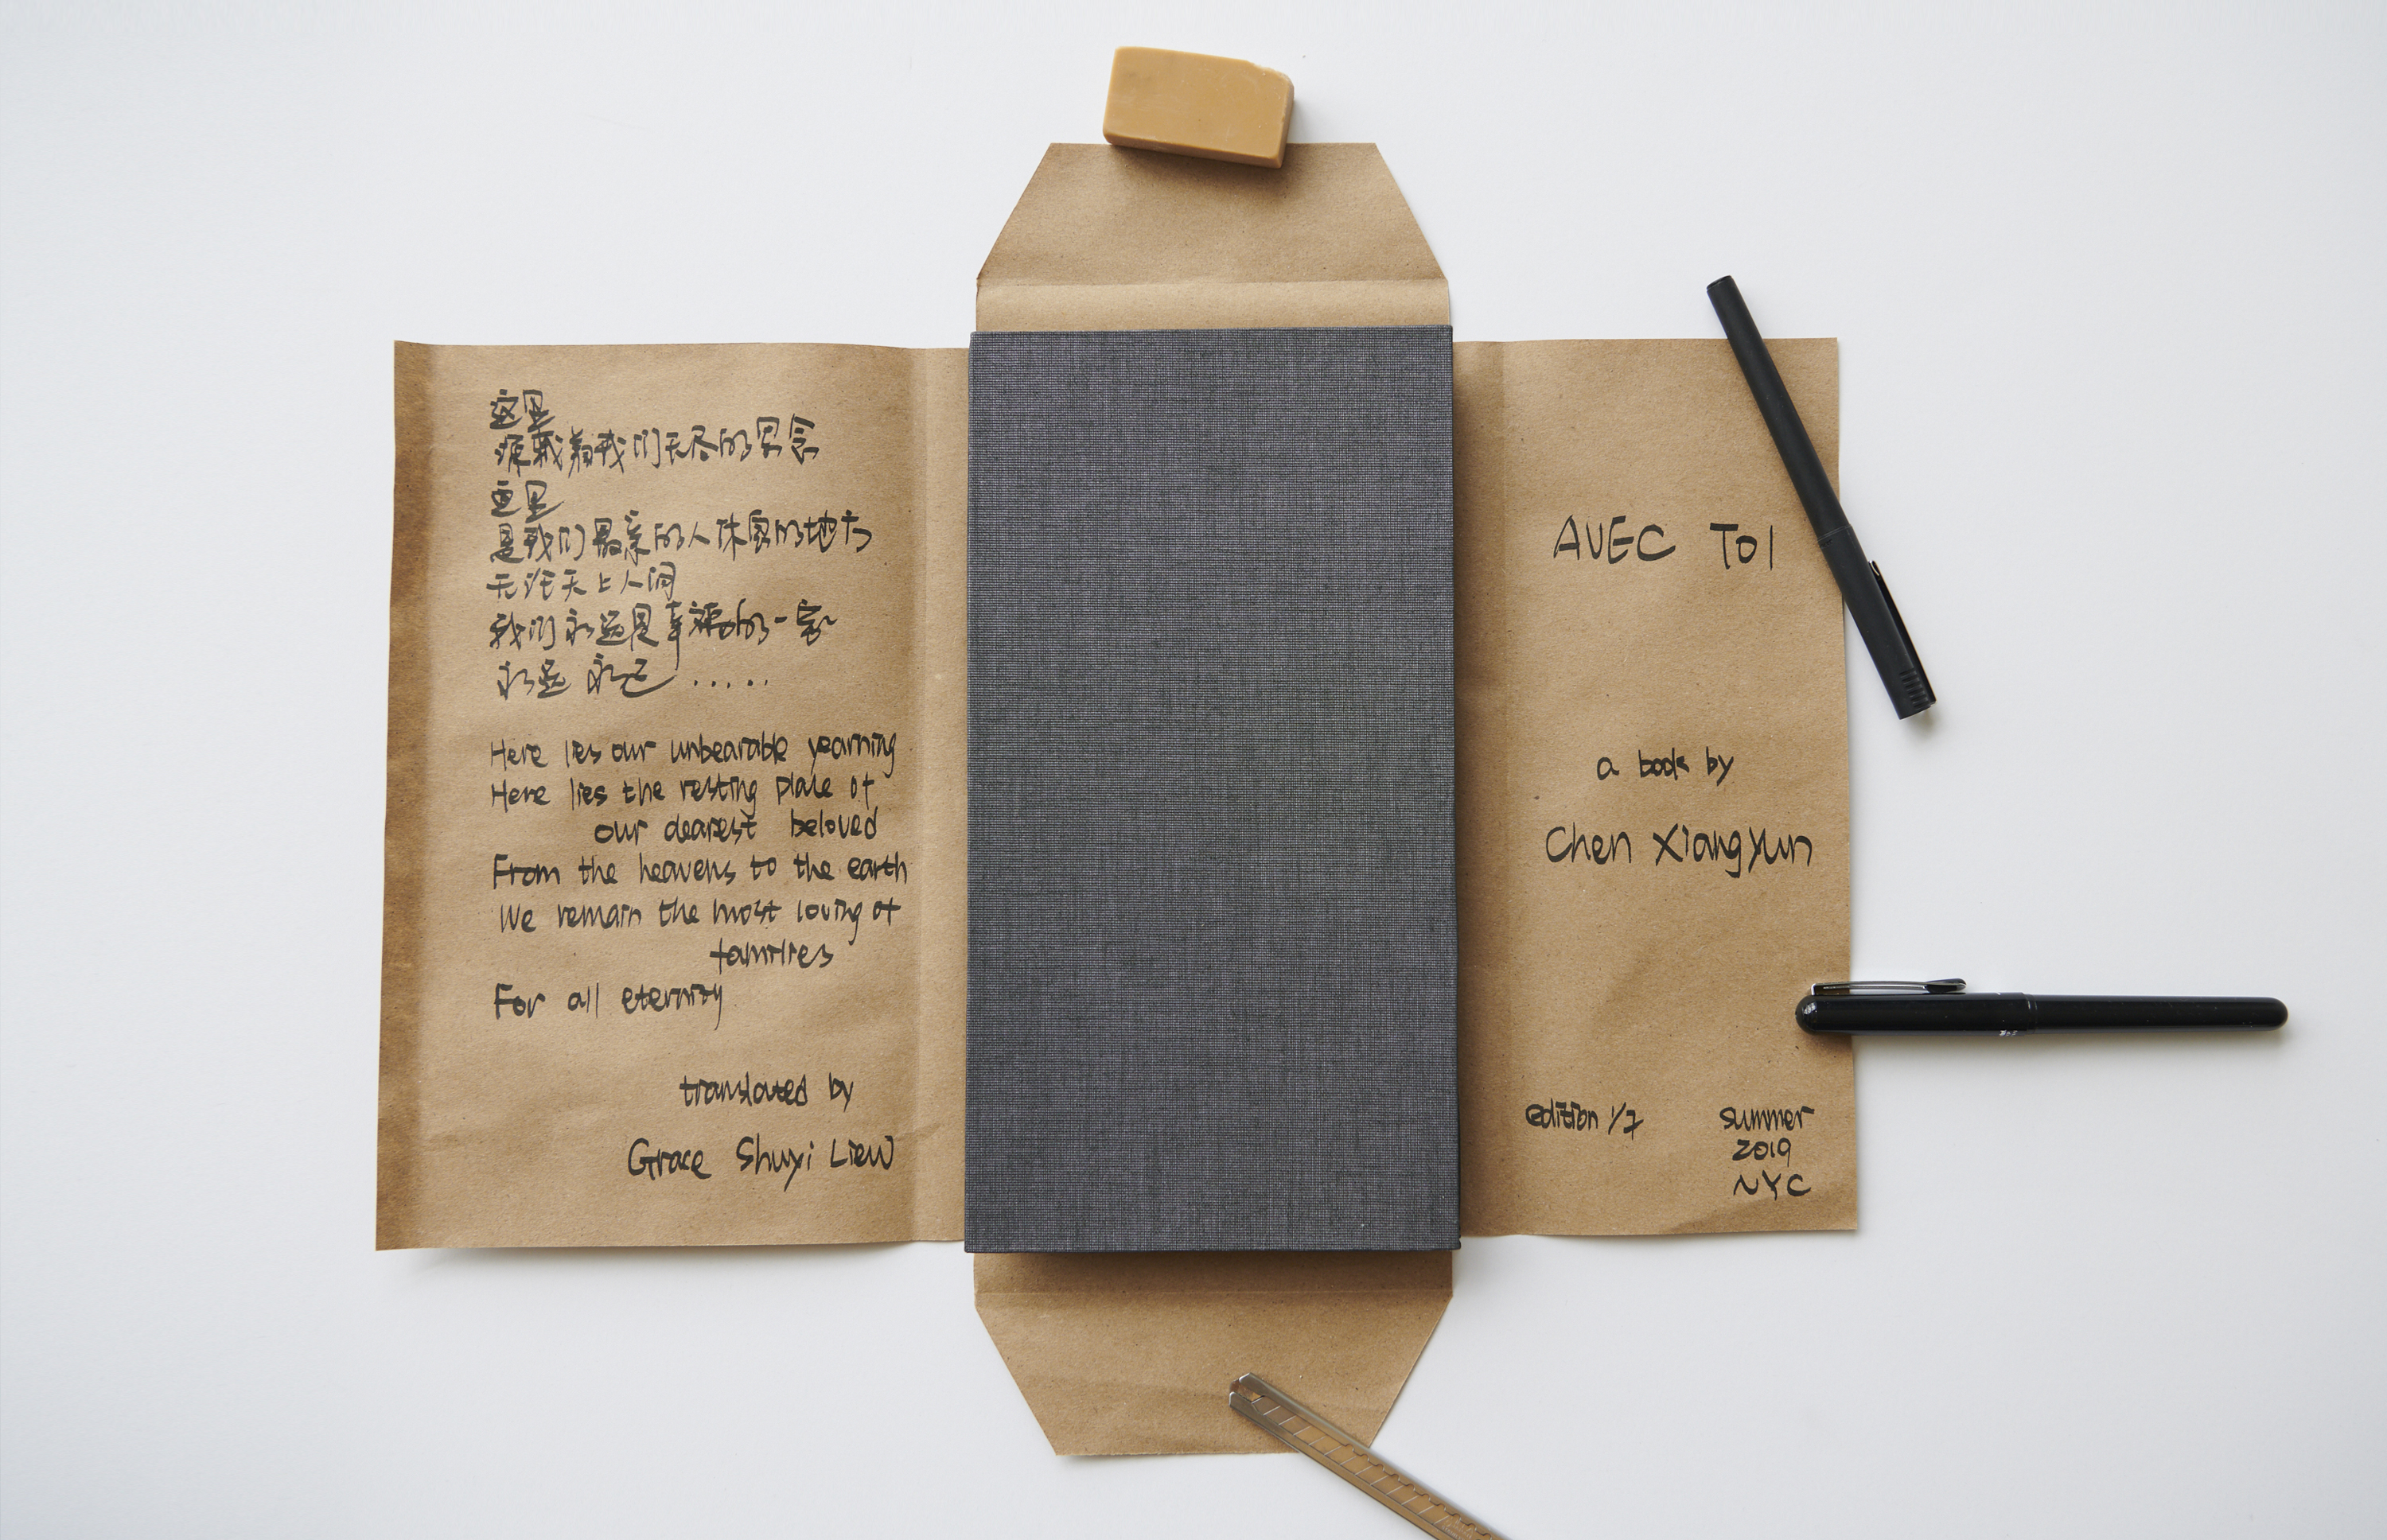 这里
承载着我们无尽的思念
这里
是我们最亲的人休息的地方
无论天上人间
我们永远是幸福的一家
永远 永远 .....
Here lies our unbearable yearning
Here lies the resting place of
our dearest beloved
From the heavens to the earth
We remain the most loving of
families
For all eternity
translated by
Grace Shuyi Liew
AVEC TOI
a book by
Chen Xiangyun
edition 1/7
summer
2019
NYC